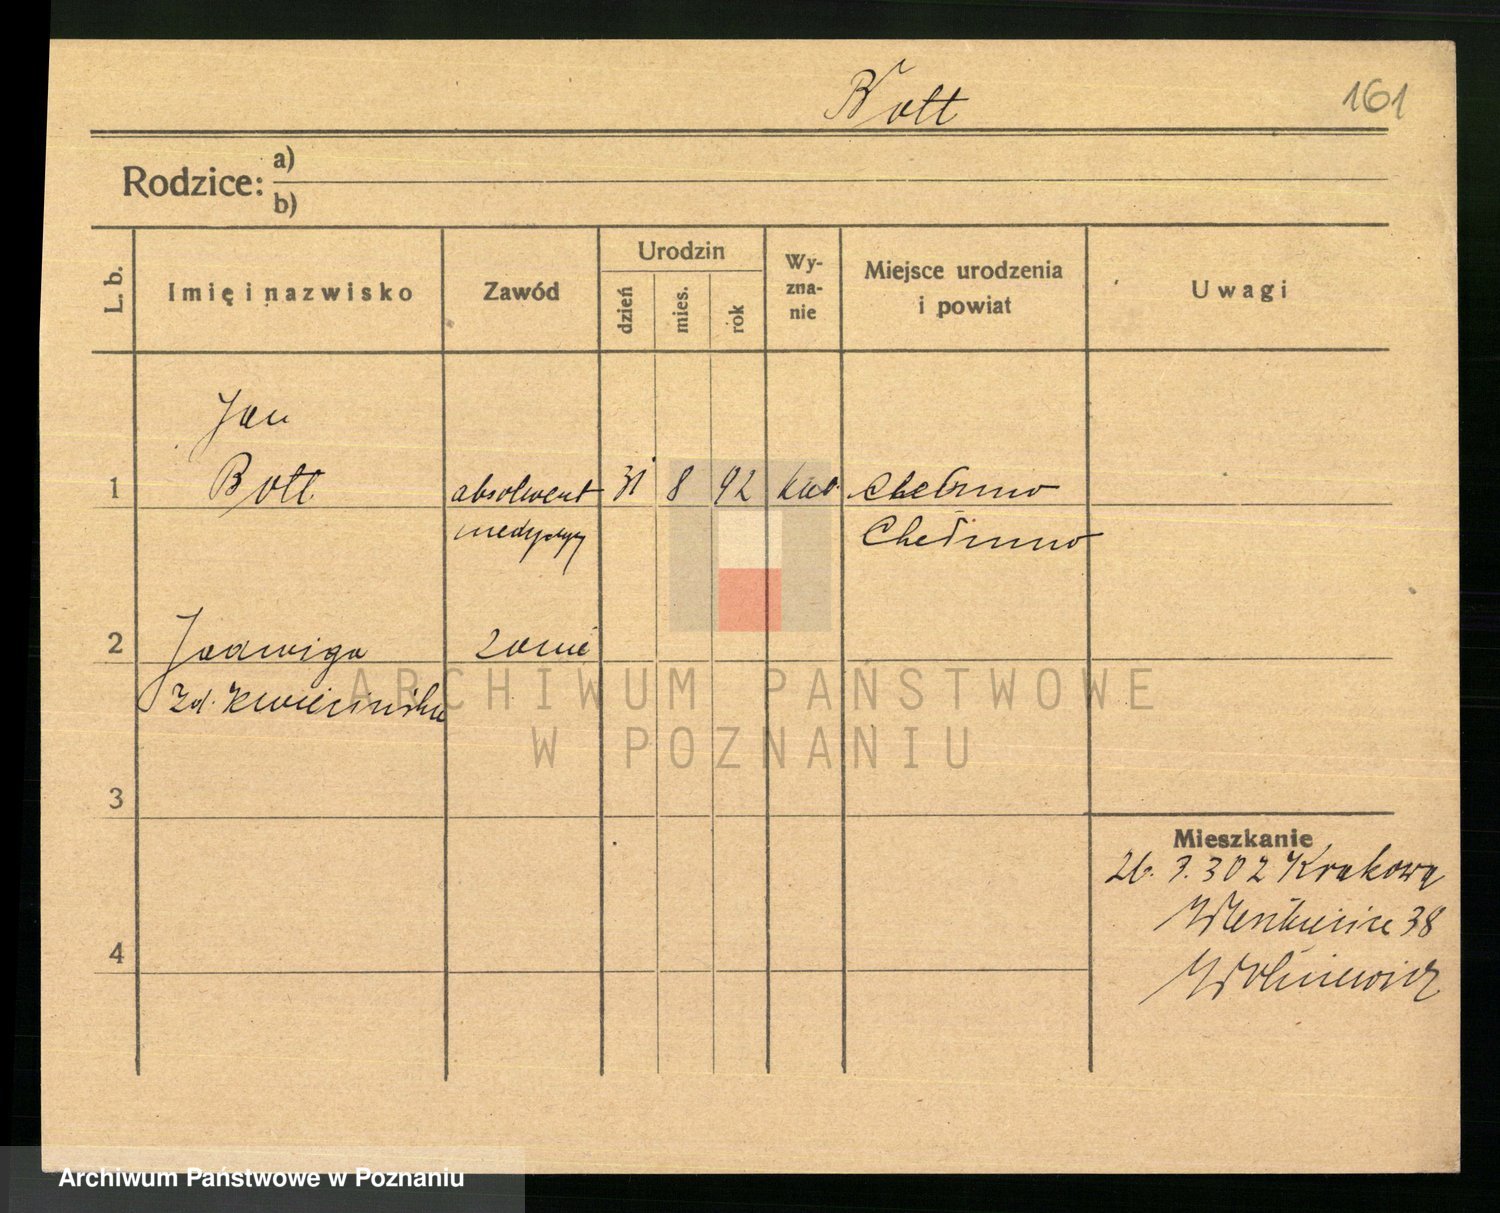 Bott
161
Rodzice:
a)
b)
L. b.
Imię i nazwisko
Zawód
Urodzin
dzień
mies.
rok
Wy-
zna-
nie
Miejsce urodzenia
i powiat
Uwagi
Jan
1 Bott absolwent 31 8 92 kat. Chełmno
medycyny Chełmno
2 Jadwiga
zd. Kwiecińska
3
Mieszkanie
26. 7. 30 z Krakowa
38
4
ARCHIWUM PAŃSTWOWE
W POZNANIU
Archiwum Państwowe w Poznaniu